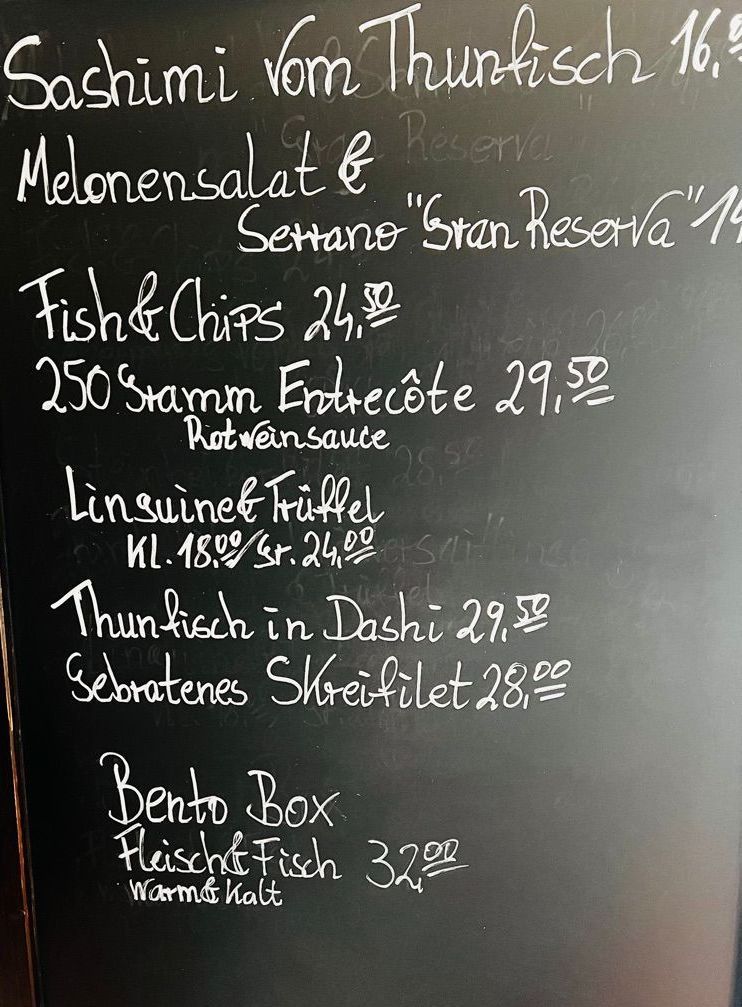 Sashimi vom Thunfisch 16,
Melonensalat &
Serrano "Gran Reserva"
Fish & Chips 24,50
250 Gramm Entrecôte 29,50
Rotweinsauce
Linguine & Trüffel
Kl. 18,00/Gr. 24,00
Thunfisch in Dashi 29,50
Gebratenes Skreifilet 28,00
Bento Box
Fleisch & Fisch 32,00
Warm & Kalt